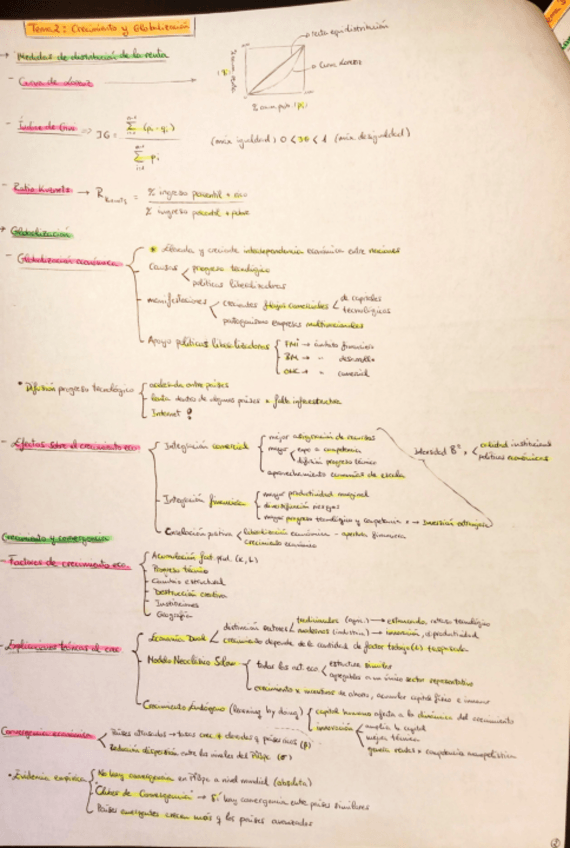 Tema 2: Crecimiento y Globalización
→ Medidas de distribución de la renta
- Curva de Lorenz →
recta equidistribución
Curva Lorenz
% acum. renta
(qi)
% acum. pob. (pi)
- Índice de Gini ⇒ IG = Σ (pi - qi) / Σ pi
(máx igualdad) 0 < IG < 1 (máx desigualdad)
- Ratio Kuznets → R Kuznets = % ingreso percentil + rico
% ingreso percentil + pobre
→ Globalización
- Globalización económica
* elevada y creciente interdependencia económica entre naciones
Causas
progreso tecnológico
políticas liberalizadoras
manifestaciones
crecientes flujos comerciales
de capitales
tecnológicos
protagonismo empresas multinacionales
Apoyo políticas liberalizadoras
FMI → ámbito financiero
BM → " desarrollo
OMC → " comercial
• Difusión progreso tecnológico
acelerada entre países
lenta dentro de algunos países x falta infraestructura
Internet
- Efectos sobre el crecimiento eco.
Integración comercial
mejor asignación de recursos
mayor
expo a competencia
difusión progreso técnico
aprovechamiento economías de escala
Intensidad
calidad instituciones
políticas económicas
Integración financiera
mayor productividad marginal
diversificación riesgos
mayor progreso tecnológico y competencia x → Inversión extranjera
Correlación positiva
liberalización económica - apertura financiera
crecimiento económico
Crecimiento y convergencia
- Factores de crecimiento eco.
Acumulación fact. prod. (K, L)
Progreso técnico
Cambio estructural
Destrucción creativa
Instituciones
Geografía
- Explicaciones teóricas al crec.
Economía Dual
distinción sectores
tradicionales (agra.) → estancado, retraso tecnológico
modernos (industria) → innovación, productividad
crecimiento depende de la cantidad de factor trabajo (L) traspasada
Modelo Neoclásico Solow
todas las act. eco.
estructura similar
agregables a un único sector representativo
crecimiento x incentivos de ahorro, acumular capital físico e humano
Crecimiento Endógeno (learning by doing)
capital humano afecta a la dinámica del crecimiento
innovación
amplía el capital
mejora técnica
genera rentas x competencia monopolística
Convergencia económica
Países atrasados → tasas crec + elevadas q países ricos (β)
Reducción dispersión entre los niveles del PIBpc (σ)
• Evidencia empírica
No hay convergencia en PIBpc a nivel mundial (absoluta)
"Clubes de Convergencia" → Sí hay convergencia entre países similares
Países emergentes crecen más q los países avanzados